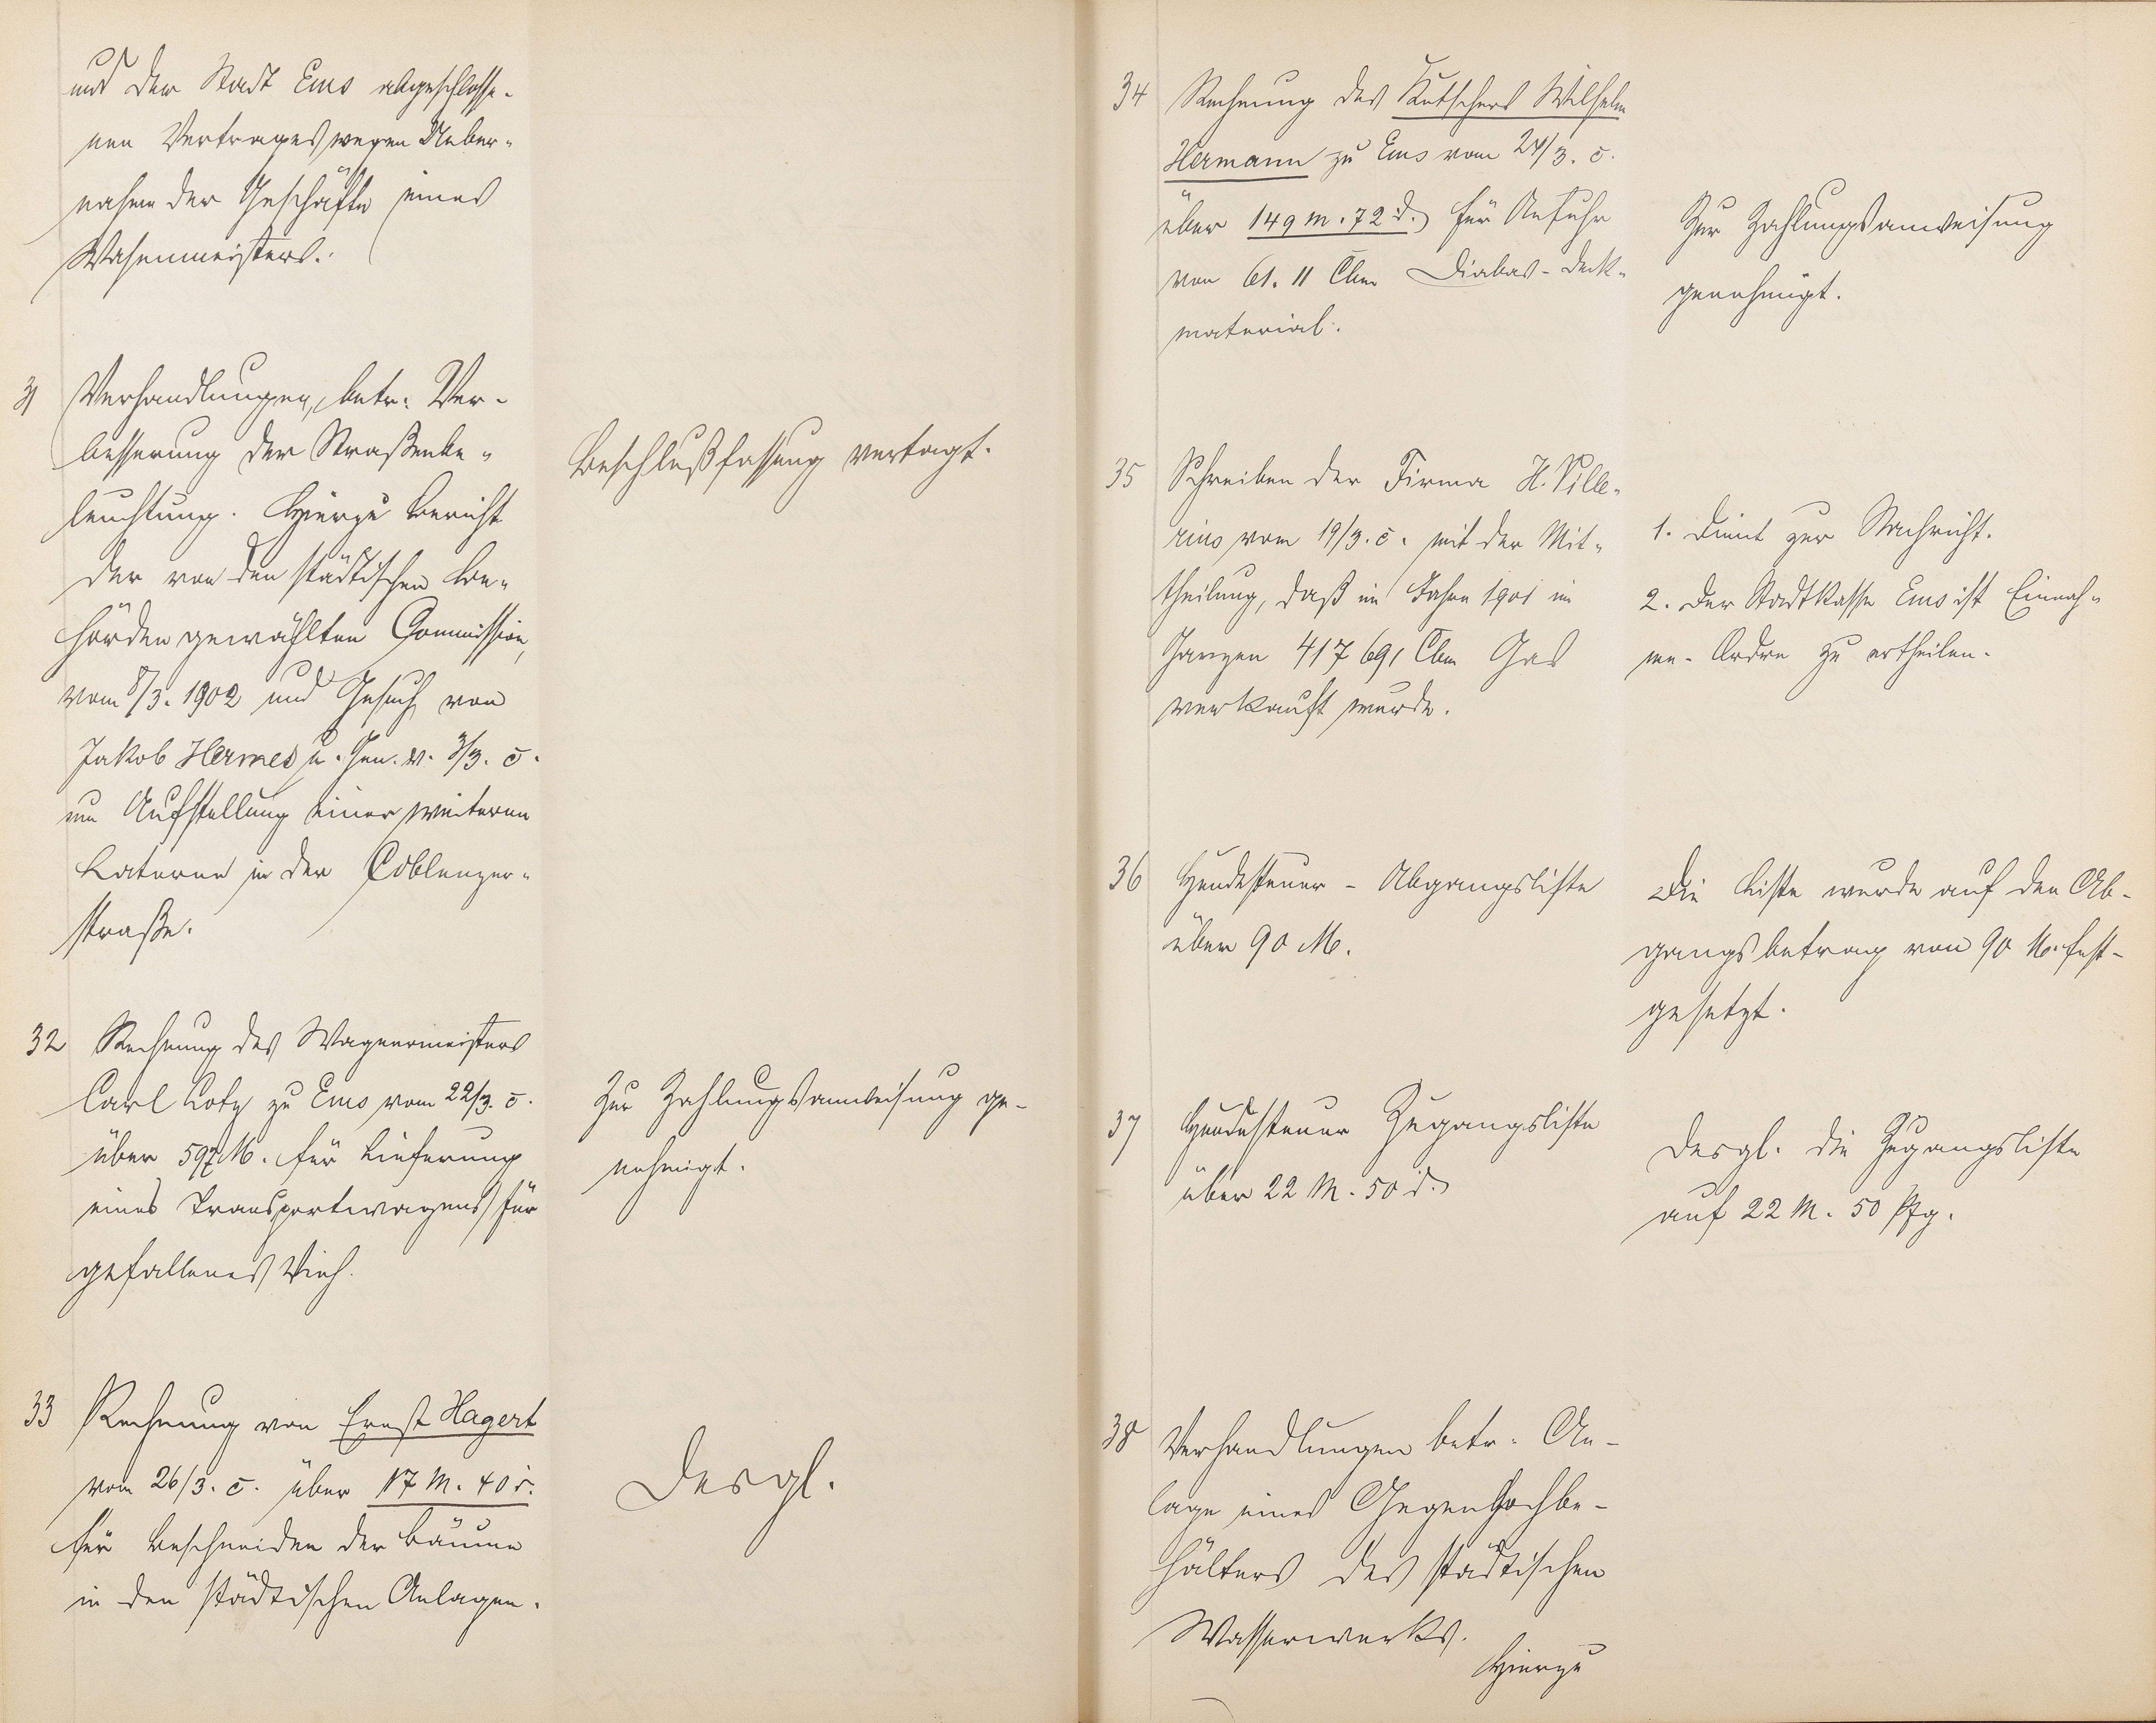 und der Stadt Ems abgeschlosse-
nen Vertrages wegen Ueber-
nahme der Geschäfte eines
Wasenmeisters.
31 Verhandlungen, betr. Ver-
besserung der Straßenbe-
leuchtung. Hierzu Bericht
der von den städtischen Be-
hörden gewählten Commission,
vom 8/3. 1902 und Gesuch von
Jakob Hermes u. Gen. v. 3/3. c.
um Aufstellung einer weiteren
Laterne in der Coblenzer-
straße.
Beschlußfassung vertagt.
32 Rechnung des Wagnermeisters
Carl Lotz zu Ems vom 22/3. c.
über 597 M. für Lieferung
eines Transportwagens für
gefallenes Vieh.
Zur Zahlungsanweisung ge-
nehmigt.
33 Rechnung von Ernst Hagert
vom 26/3. c. über 17 M. 40 d.
für Beschneiden der Bäume
in den städtischen Anlagen.
Desgl.
34 Rechnung des Kutschers Wilhelm
Hermann zu Ems vom 24/3. c.
über 149 M. 72 d. für Anfuhr
von 61.11 Cbm Diabas-Deck-
material.
Zur Zahlungsanweisung
genehmigt.
35 Schreiben der Firma H.
vom 19/3. c. mit der Mit-
theilung, daß im Jahre 1901 im
Ganzen 417 691 Cbm Gas
verkauft wurde.
1. Dient zur Nachricht.
2. Der Stadtkasse Ems ist Einnah-
me-Ordre zu ertheilen.
36 Hundesteuer-Abgangsliste
über 90 M.
Die Liste wurde auf den Ab-
gangsbetrag von 90 M. fest-
gesetzt.
37 Hundesteuer Zugangsliste
über 22 M. 50 d.
Desgl. die Zugangsliste
auf 22 M. 50 Pfg.
38 Verhandlungen betr. An-
lage eines Gegenhochbe-
hälters des städtischen
Wasserwerks.
Hierzu